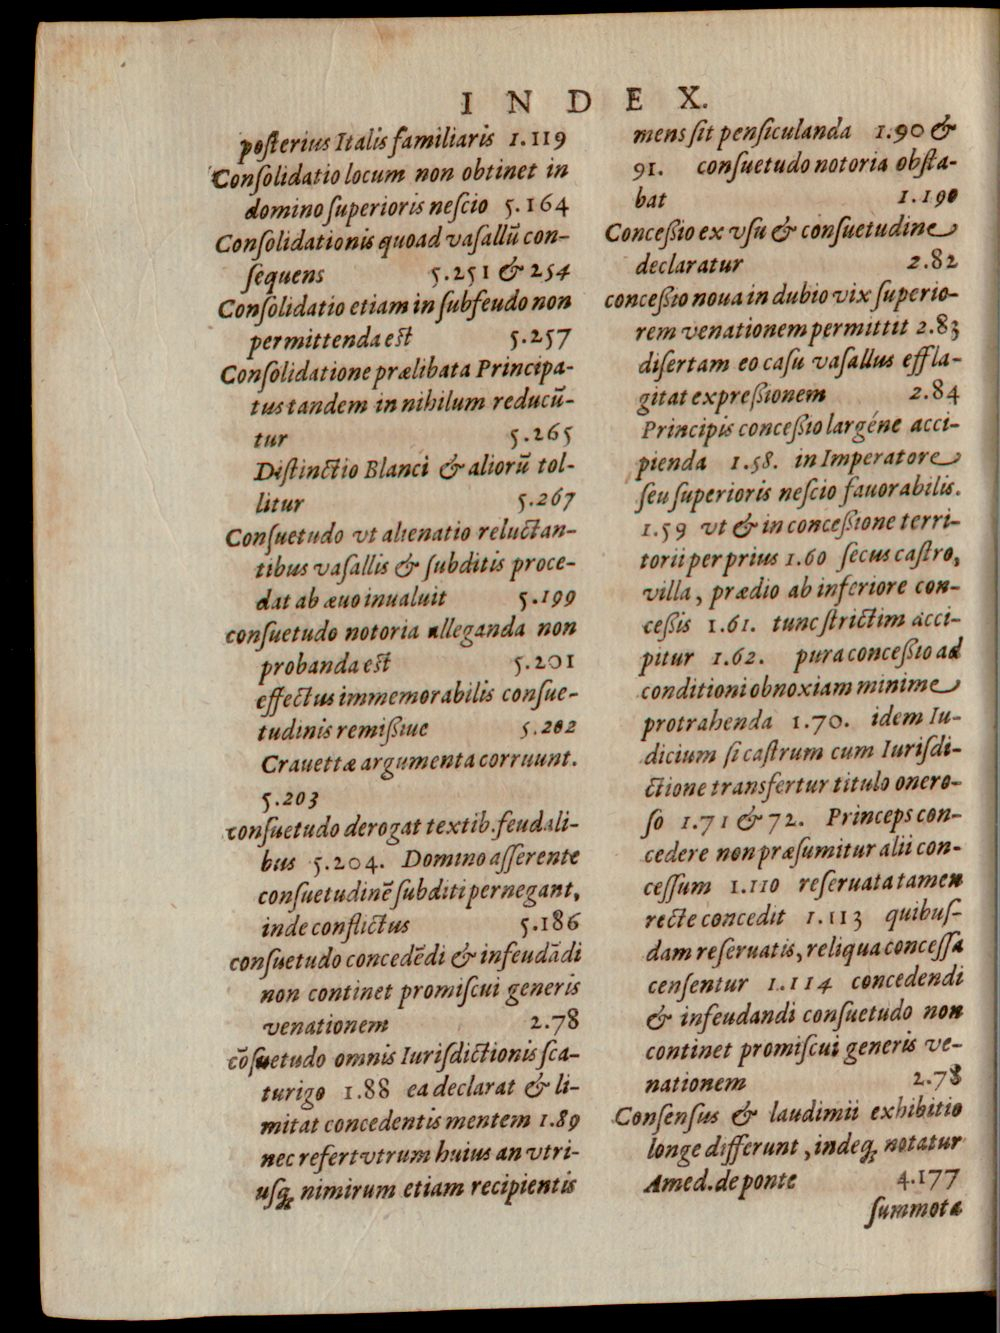 INDEX.
posterius Italis familiaris 1.119
Consolidatio locum non obtinet in
domino superioris nescio 5.164
Consolidationis quoad vasallũ con-
sequens 5.251 & 254
Consolidatio etiam in subfeudo non
permittenda est 5.257
Consolidatione prælibata Principa-
tus tandem in nihilum reducũ-
tur 5.265
Distinctio Blanci & aliorũ tol-
litur 5.267
Consuetudo vt alienatio reluctan-
tibus vasallis & subditis proce-
dat ab æuo inualuit 5.199
consuetudo notoria alleganda non
probanda est 5.201
effectus immemorabilis consue-
tudinis remißiue 5.202
Crauettæ argumenta corruunt.
5.203
consuetudo derogat textib. feudali-
bus 5.204. Domino asserente
consuetudinẽ subditi pernegant,
inde conflictus 5.186
consuetudo concedẽdi & infeudãdi
non continet promiscui generis
venationem 2.78
cõsuetudo omnis Iurisdictionis sca-
turigo 1.88 ea declarat & li-
mitat concedentis mentem 1.89
nec refert vtrum huius an vtri-
usq; nimirum etiam recipientis
mens sit pensiculanda 1.90 &
91. consuetudo notoria obsta-
bat 1.190
Conceßio ex vsu & consuetudine
declaratur 2.82
conceßio noua in dubio vix superio-
rem venationem permittit 2.83
disertam eo casu vasallus effla-
gitat expreßionem 2.84
Principis conceßio largéne acci-
pienda 1.58. in Imperatore
seu superioris nescio fauorabilis.
1.59 vt & in conceßione terri-
torii per prius 1.60 secus castro,
villa, prædio ab inferiore con-
ceßis 1.61. tunc strictim acci-
pitur 1.62. pura conceßio ad
conditioni obnoxiam minime
protrahenda 1.70. idem Iu-
dicium si castrum cum Iurisdi-
ctione transfertur titulo onero-
so 1.71 & 72. Princeps con-
cedere non præsumitur alii con-
cessum 1.110 reseruata tamen
recte concedit 1.113 quibus-
dam reseruatis, reliqua concessa
censentur 1.114 concedendi
& infeudandi consuetudo non
continet promiscui generis ve-
nationem 2.78
Consensus & laudimii exhibitio
longe differunt, indeq; notatur
Amed. de ponte 4.177
summota